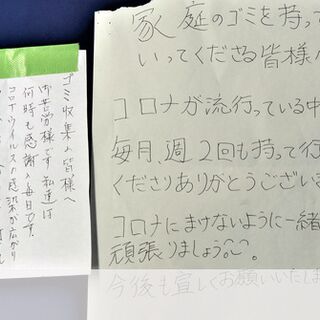 家庭のゴミを持って
いってくださる皆様へ
コロナが流行っている中
毎月、週2回も持って行
くださりありがとうござい
コロナにまけないように一緒
頑張りましょう。
今後も宜しくお願いいたしま
ゴミ収集の皆様へ
御苦労様です。私達は
何時も感謝の毎日です。
コロナウイルスの感染が広がり